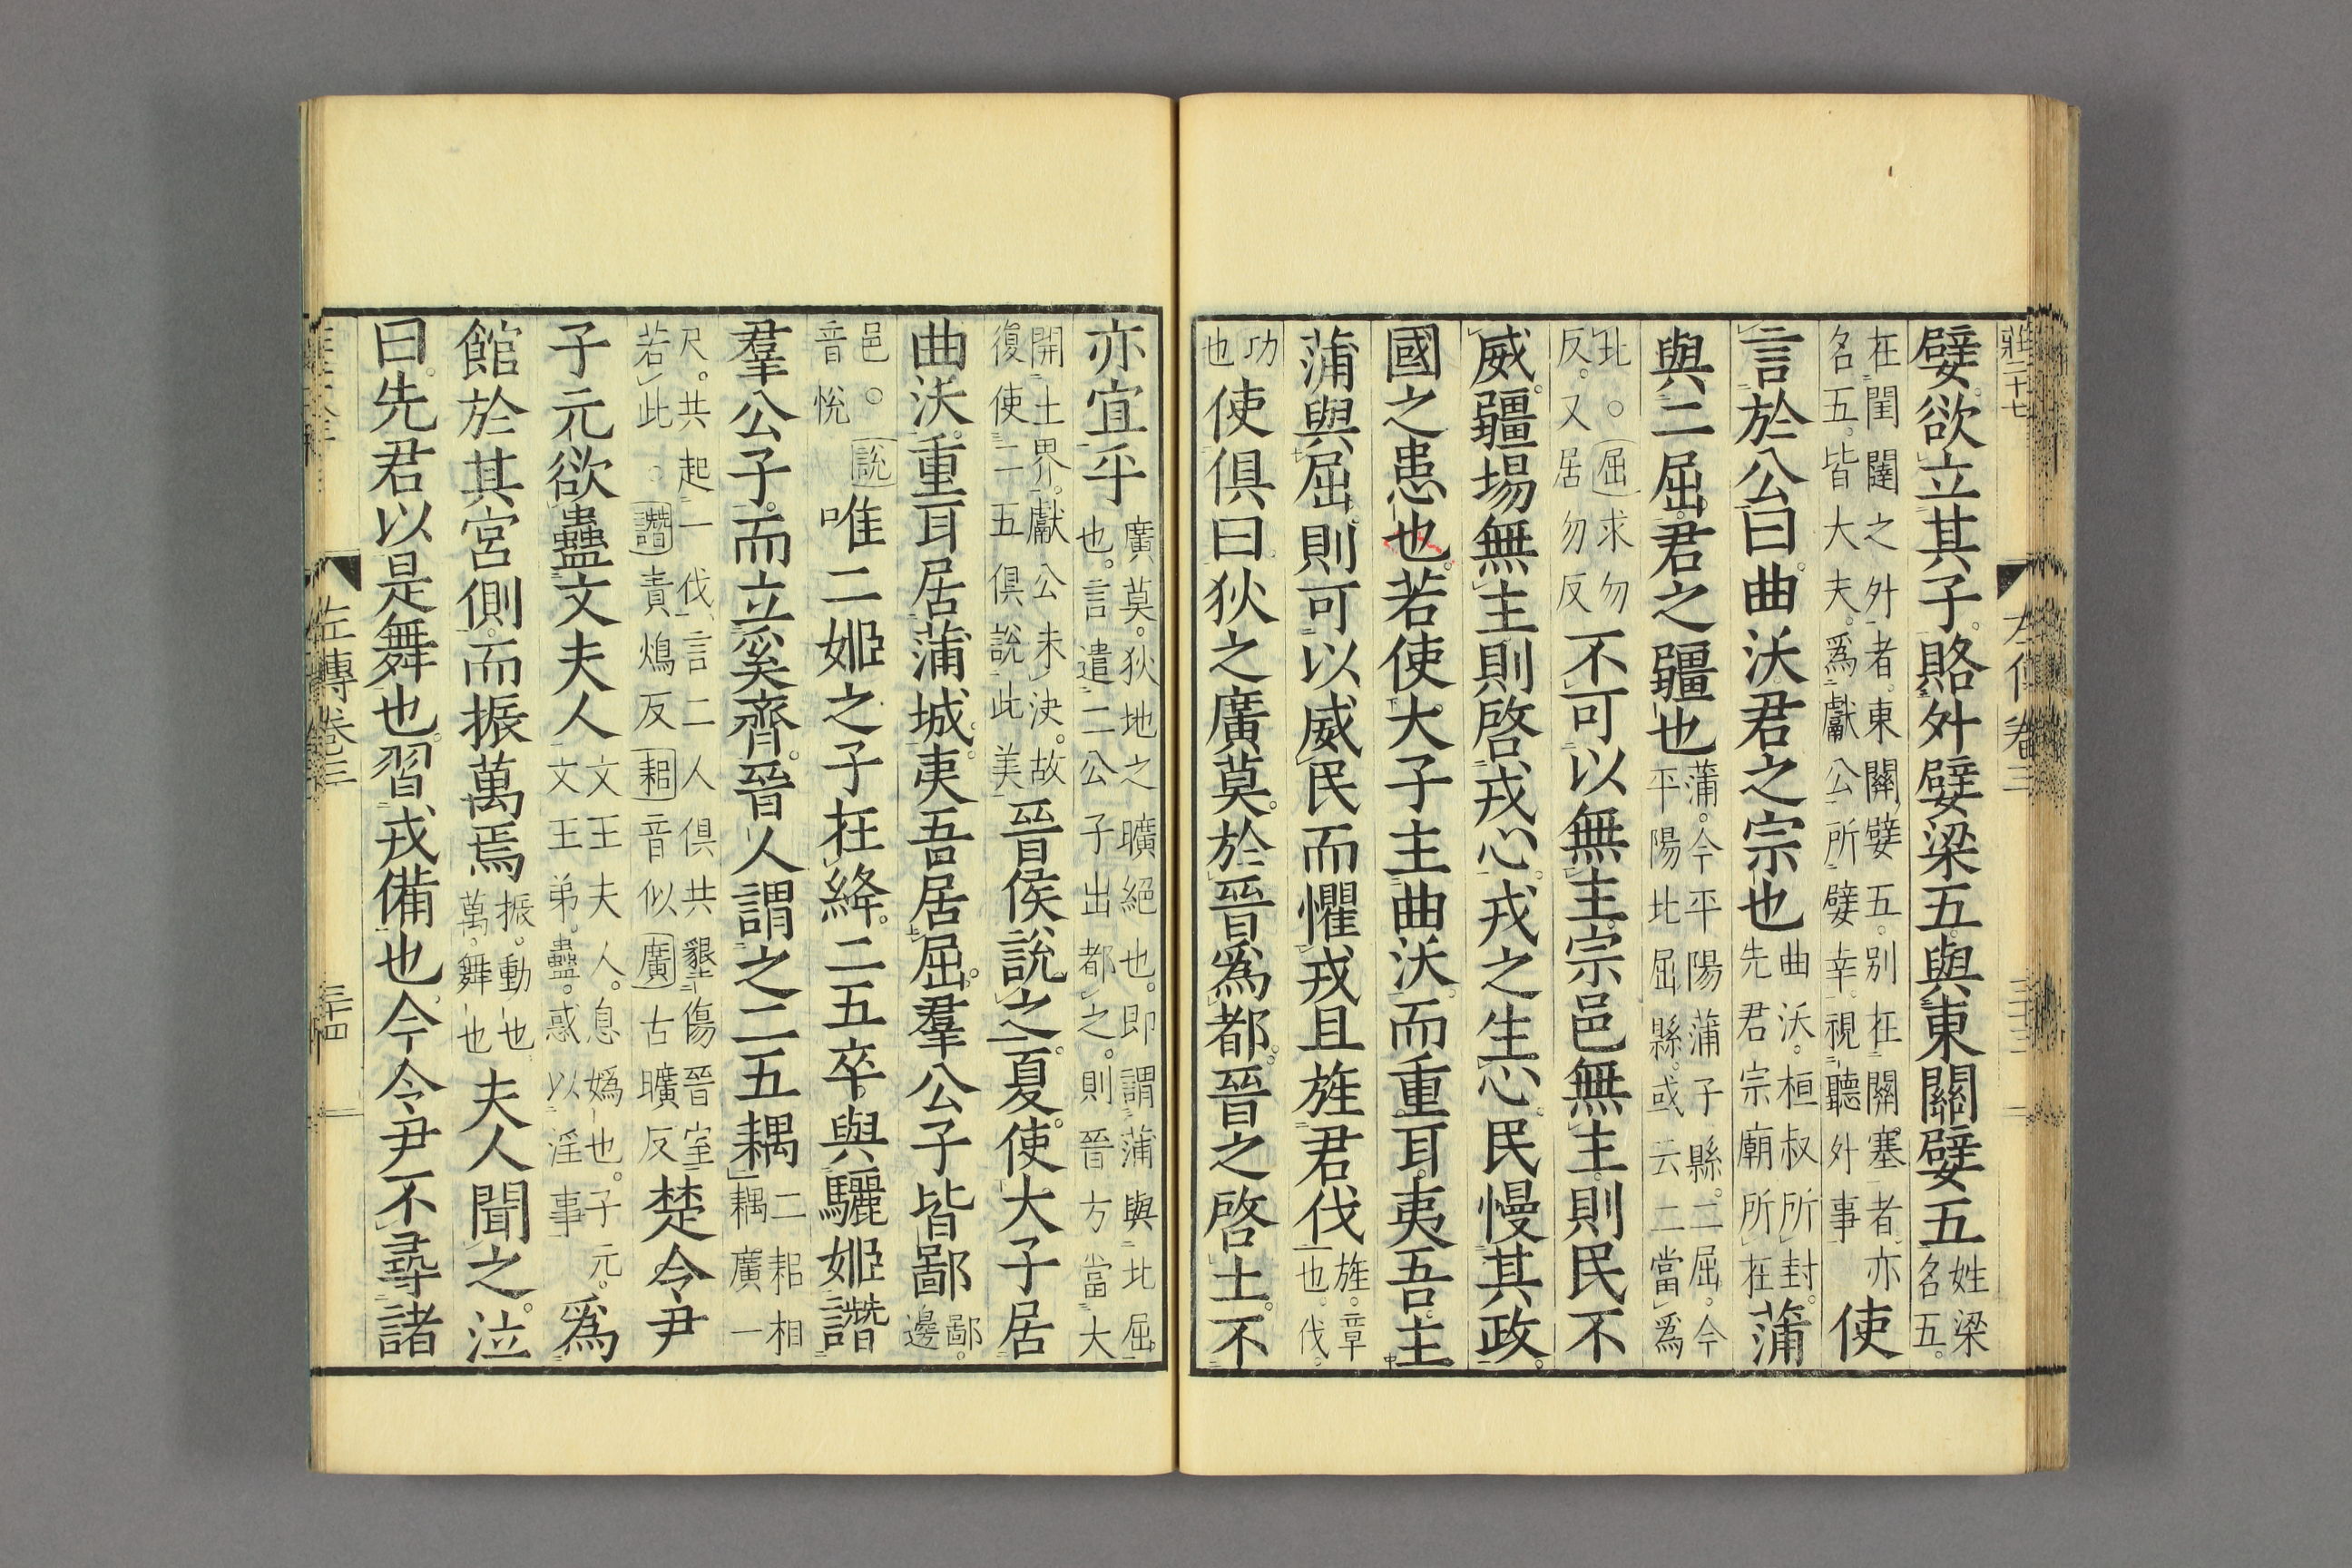 莊二十七
左傳卷三
嬖。欲立其子。賂外嬖梁五。與東關嬖五姓梁名五。
在閨闥之外者。東關嬖五。別在關塞者。亦名五。皆大夫。爲獻公所嬖幸。視聽外事使
言於公曰。曲沃。君之宗也曲沃。桓叔所封。先君宗廟所在蒲
與二屈。君之疆也蒲。今平陽蒲子縣。二屈。今平陽北屈縣。或云二當爲
北。○屈求勿反。又居勿反不可以無主。宗邑無主。則民不
威。疆埸無主則啓戎心。戎之生心。民慢其政。
國之患也。若使大子主曲沃。而重耳。夷吾。主
蒲與屈。則可以威民而懼戎。且旌君伐旌。章也。伐。
功也使俱曰。狄之廣莫。於晉爲都。晉之啓土。不
亦宜乎廣莫。狄地之曠絕也。即謂蒲與北屈也。言遣二公子出都之。則晉方當大
開土界。獻公未決。故復使二五俱說此美晉侯說之。夏。使大子居
曲沃。重耳居蒲城。夷吾居屈。羣公子皆鄙鄙。邊
邑。○說音悅唯二姬之子在絳。二五卒與驪姬譖
羣公子。而立奚齊。晉人謂之二五耦二耜相耦廣一
尺。共起一伐。言二人俱共墾傷晉室若此。譖責鴆反耜音似廣古曠反楚令尹
子元欲蠱文夫人文王夫人。息嬀也。子元。文王弟。蠱。惑以淫事爲
館於其宮側。而振萬焉振。動也。萬。舞也夫人聞之。泣
曰。先君以是舞也。習戎備也。今令尹不尋諸
左傳卷三
三十四